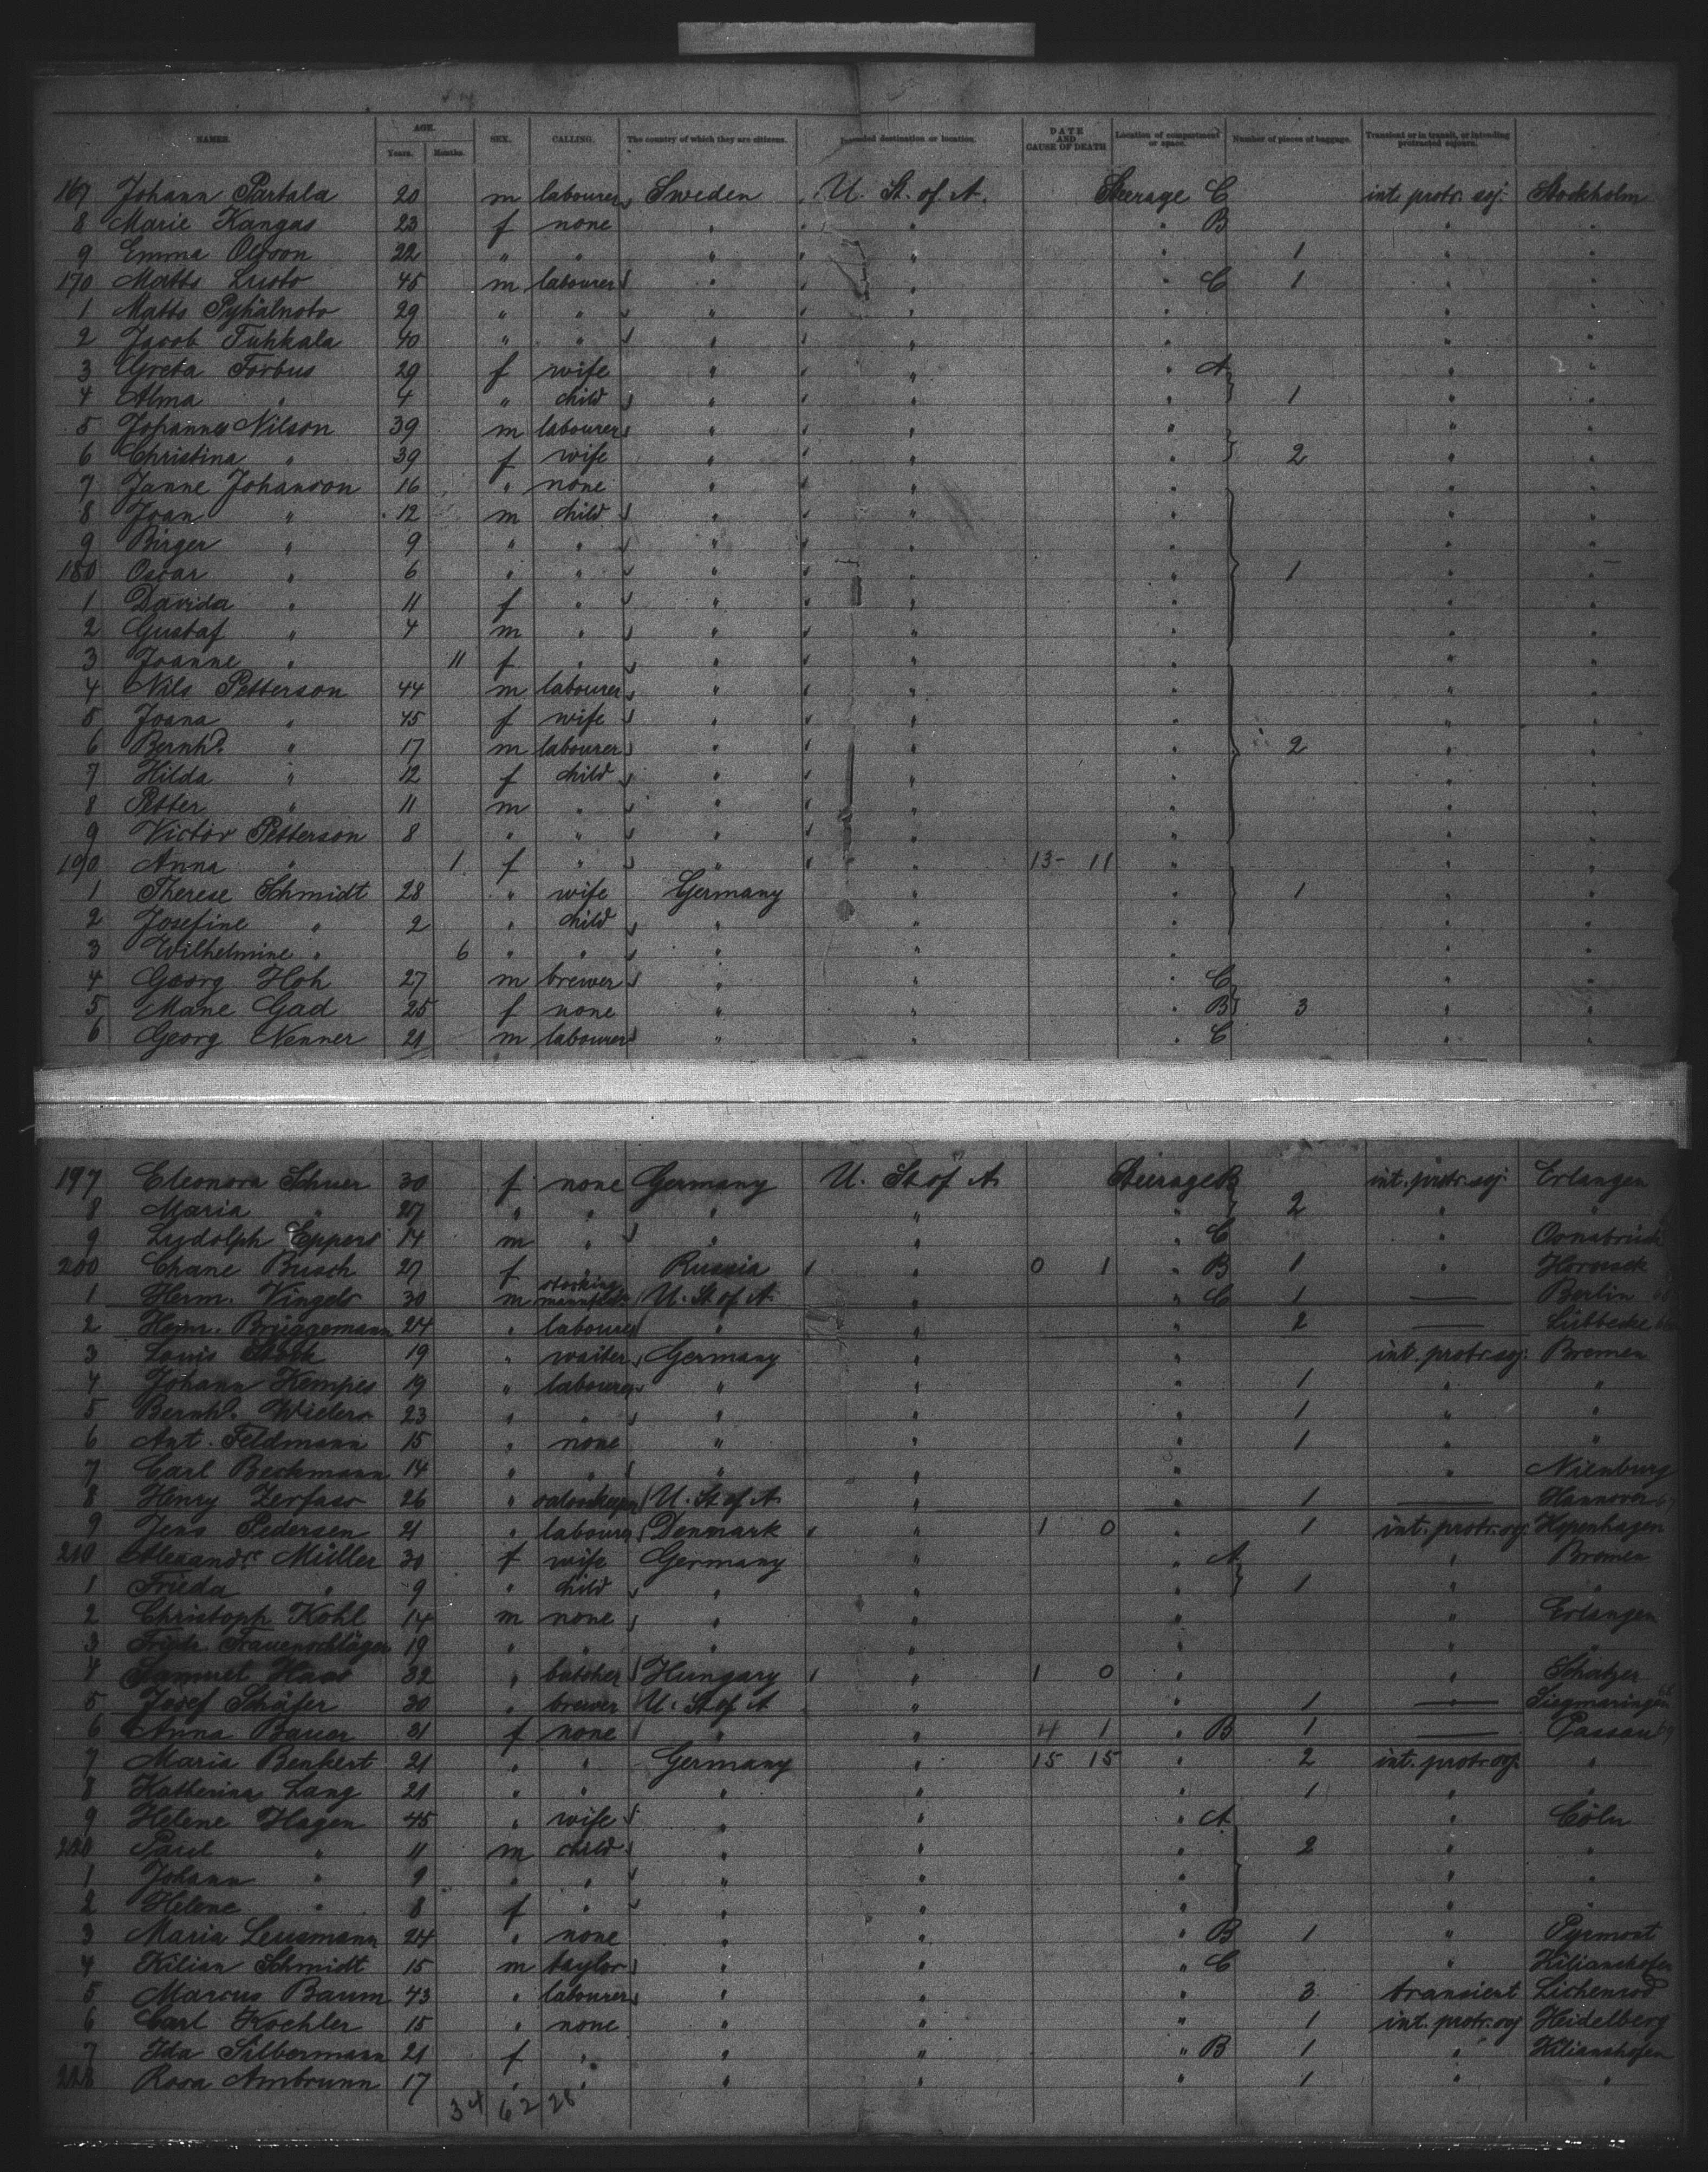 NAMES. AGE. Years. Months. SEX. CALLING. The country of which they are citizens. Intended destination or location. DATE AND CAUSE OF DEATH Location of compartment or space. Number of pieces of baggage. Transient or in transit, or intending protracted sojourn.
167 Johann Partala 20 m labourer Sweden U. St. of A. Steerage C int. protr. soj. Stockholm
8 Marie Kangas 23 f none " " " B " "
9 Emma Olsson 22 " " " " " 1 " "
170 Matts Lusto 45 m labourer " " " C 1 " "
1 Matts 29 " " " " " " "
2 Jacob Tuhkala 40 " " " " " " "
3 Greta Forbus 29 f wife " " " A " "
4 Alma " 4 " child " " " 1 " "
5 Johannes Nilson 39 m labourer " " " " "
6 Christina " 39 f wife " " " 2 " "
7 Janne Johanson 16 " none " " " " "
8 Joan " 12 m child " " " " "
9 Birger " 9 " " " " " " "
180 Oscar " 6 " " " " " 1 " "
1 Davida " 11 f " " " " " "
2 Gustaf " 4 m " " " " " "
3 Joanne " 11 f " " " " " "
4 Nils Petterson 44 m labourer " " " " "
5 Joana " 45 f wife " " " " "
6 Bernhd. " 17 m labourer " " " 2 " "
7 Hilda " 12 f child " " " " "
8 Petter " 11 m " " " " " "
9 Victor Petterson 8 " " " " " " "
190 Anna " 1 f " " " 13- 11 " " "
1 Therese Schmidt 28 " wife Germany " " 1 " "
2 Josefine " 2 " child " " " " "
3 Wilhelmine " 6 " " " " " " "
4 Georg Hoh 27 m brewer " " " C " "
5 Marie Gad 25 f none " " " B 3 " "
6 Georg Nenner 21 m labourer " " " C " "
197 Eleonora Schuer 30 f none Germany U. St of A Steerage B int. protr. soj. Erlangen
8 Maria " 27 " " " " " 2 " "
9 Ludolph Eppers 14 m " " " " C " Osnabrück
200 Chane Busch 27 f " Russia " 0 1 " B 1 "
1 Herm. Vingels 30 m U. St. of A. " " C 1 — Berlin
2 Heinr. Brüggemann 24 " labourer " " " 2 — Lübbecke
3 Louis 19 " waiter Germany " " int. protr. soj. Bremen
4 Johann Kempes 19 " labourer " " " 1 " "
5 Bernhd. Wielers 23 " " " " " 1 " "
6 Ant. Feldmann 15 " none " " " 1 " "
7 Carl Beckmann 14 " " " " " " Nienburg
8 Henry Zerfass 26 " saloonkeeper U. St of A. " " 1 — Hannover
9 Jens Pedersen 21 " labourer Denmark " 1 0 " 1 int. protr. soj. Kopenhagen
210 Alexandr. Müller 30 f wife Germany " " A " Bremen
1 Frieda " 9 " child " " " 1 " "
2 Christoph Kohl 14 m none " " " " Erlangen
3 Friedr. Frauenschläger 19 " " " " " " "
4 Samuel Haas 32 " butcher Hungary " 1 0 " "
5 Josef Schäfer 30 " brewer U. St of A " " 1 — Siegmaringen
6 Anna Bauer 31 f none " " 4 1 " B 1 — Passau
7 Maria Benkert 21 " " Germany " 15 15 " 2 int. protr. soj. "
8 Katherina Lang 21 " " " " " 1 " "
9 Helene Hagen 45 " wife " " " A " Cöln
220 Paul " 11 m child " " " 2 " "
1 Johann " 9 " " " " " " "
2 Helene " 8 f " " " " " "
3 Maria Leusmann 24 " none " " " B 1 " Pyrmont
4 Kilian Schmidt 15 m taylor " " " C " Kilianshofen
5 Marcus Baum 43 " labourer " " " 3 transient Lichenrod
6 Carl Kochler 15 " none " " " 1 int. protr. soj Heidelberg
7 Ida Silbermann 21 f " " " " B 1 " Kilianshofen
228 Rosa Ambrunn 17 " " " " " 1 " "
34 62 28